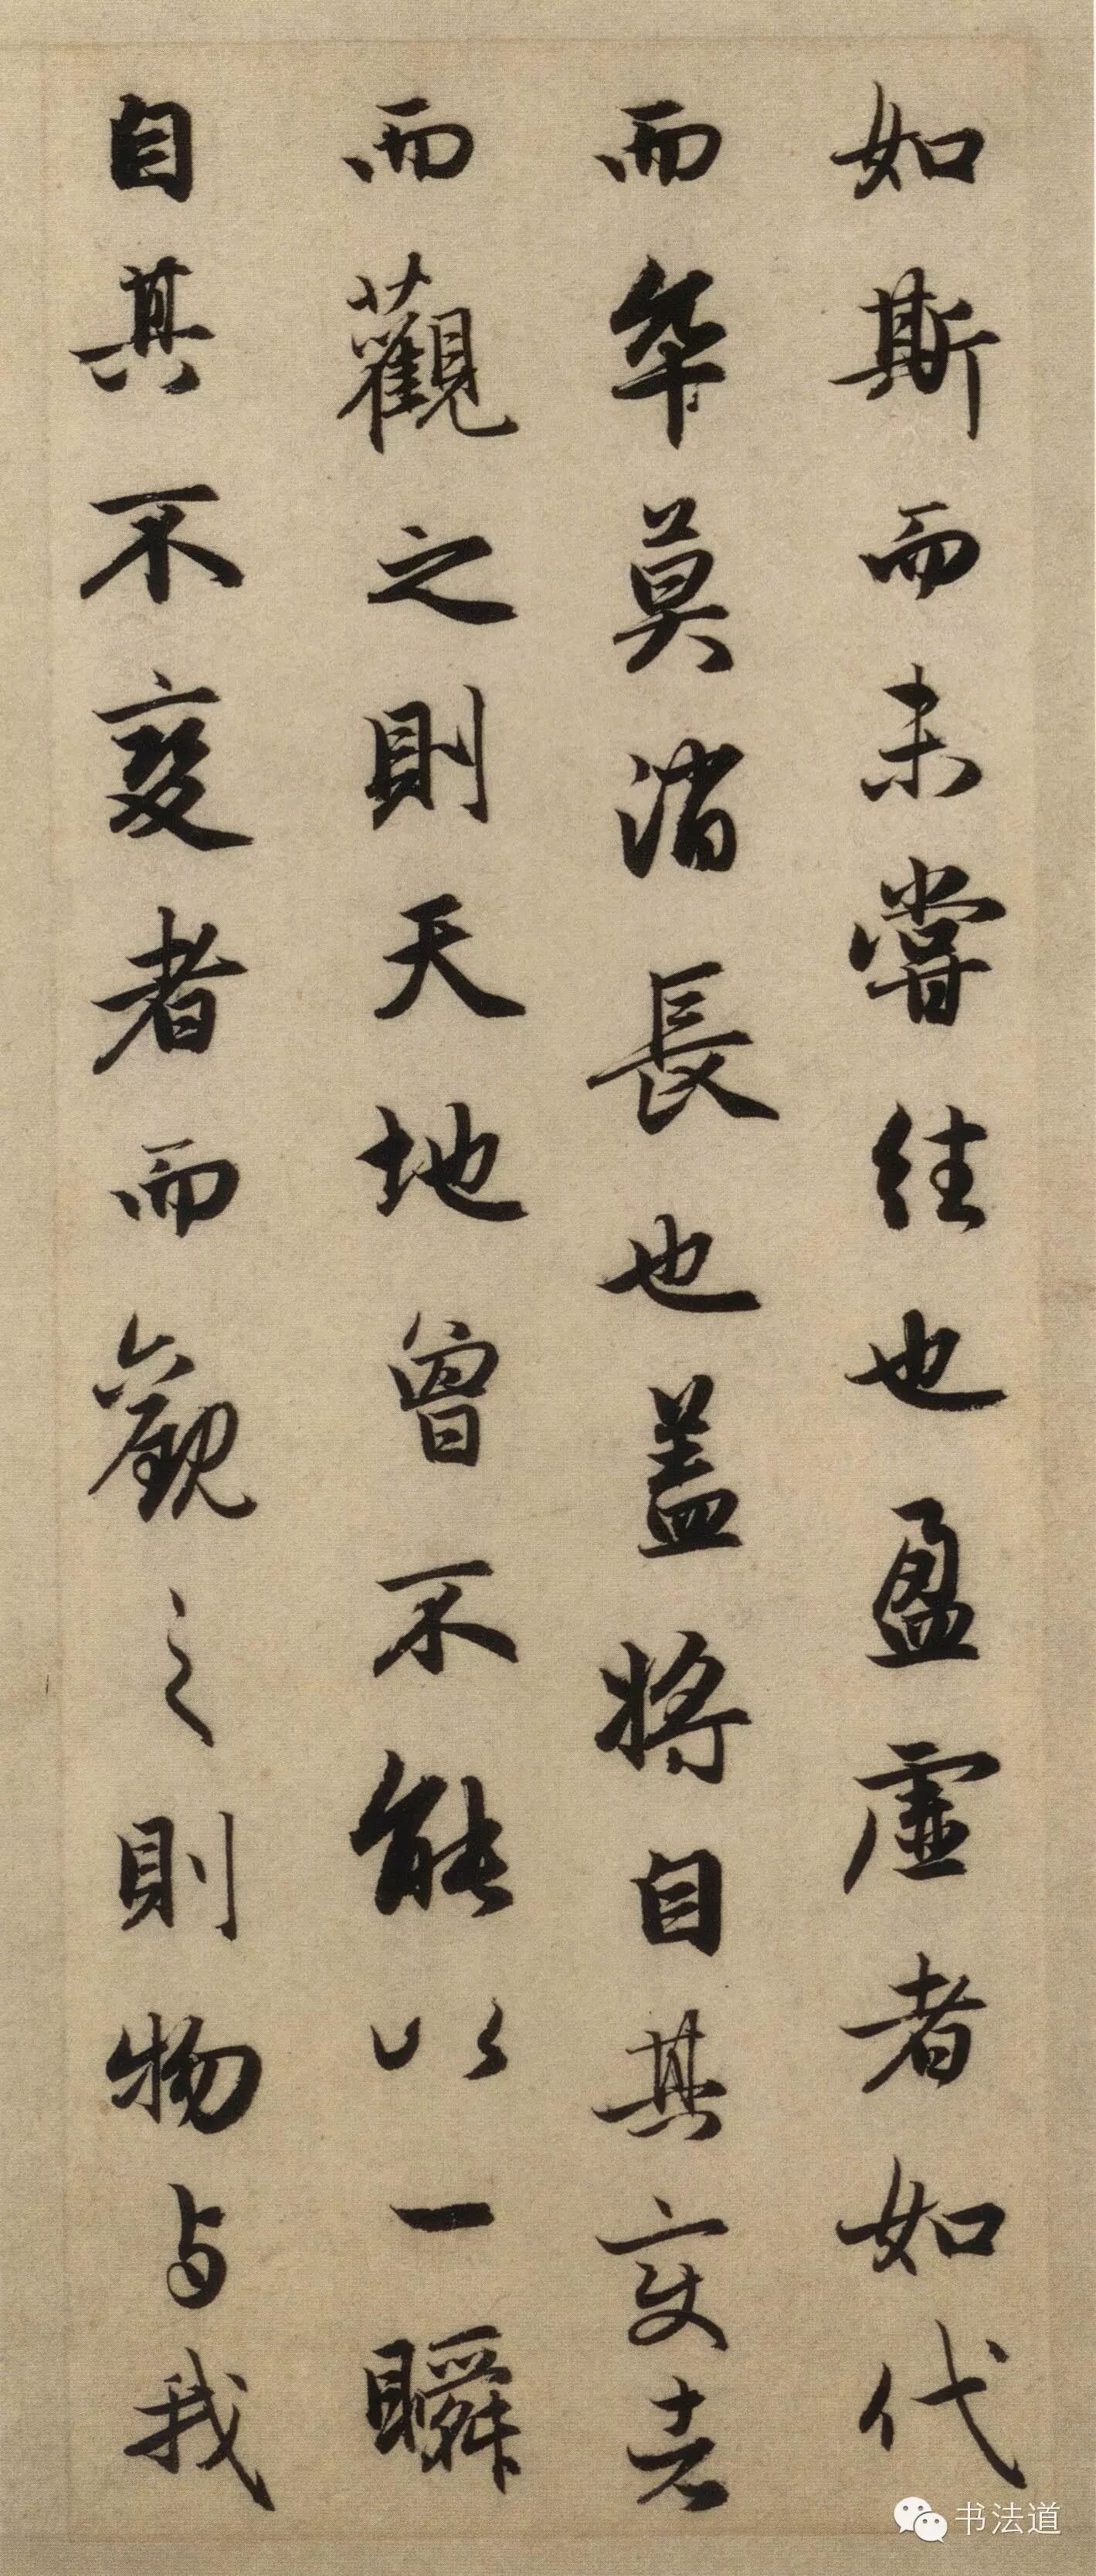 如斯而未嘗往也盈虛者如代
而卒莫消長也盖將自其變者
而觀之則天地曾不能以一瞬
自其不變者而觀之則物与我
书法道